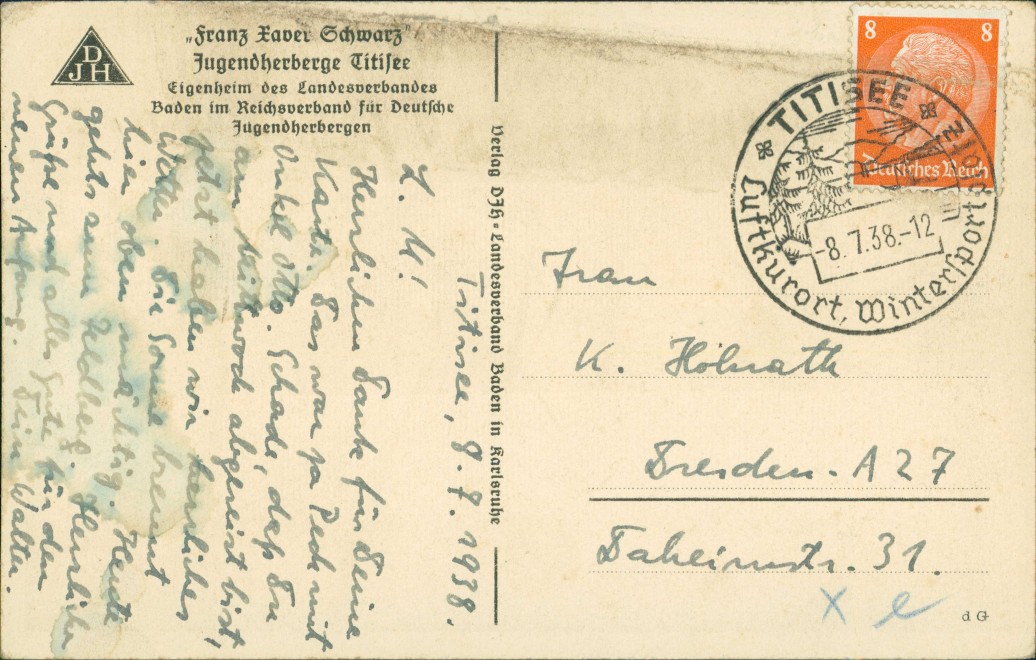 DJH
„Franz Xaver Schwarz“
Jugendherberge Titisee
Eigenheim des Landesverbandes
Baden im Reichsverband für Deutsche
Jugendherbergen
Titisee, 8. 7. 1938.
L. M!
Herzlichen Dank für Deine
Karte. Das war ja Pech mit
Onkel Otto. Schade, daß Du
am Mittwoch abgereist bist,
jetzt haben wir herrliches
Wetter. Die Sonne brennt
hier oben mächtig. Heute
gehts zum Feldberg. Herzliche
Grüße und alles Gute für den
neuen Anfang. Dein Walter.
Verlag DJH-Landesverband Baden in Karlsruhe
8 8
Deutsches Reich
TITISEE
-8. 7.38.-12
Luftkurort, Wintersportplatz
Frau
K. Holrath
Dresden-A 27
Daheimstr. 31.
x e
d G